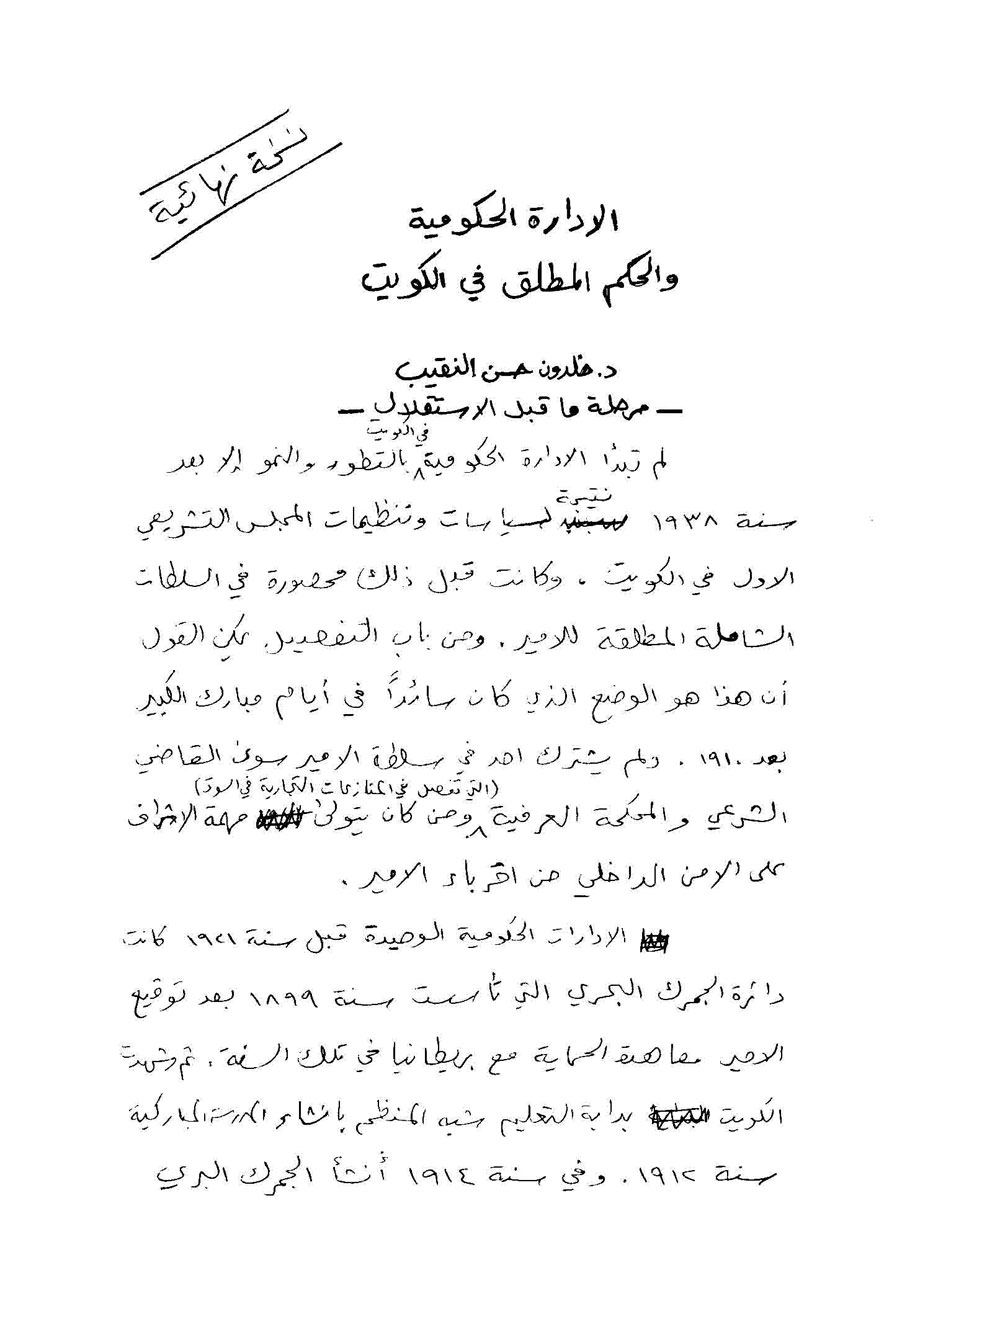 نسخة نهائية
الادارة الحكومية
والحكم المطلق في الكويت
د. خلدون حسن النقيب
— مرحلة ما قبل الاستقلال —
في الكويت
لم تبدأ الادارة الحكومية بالتطور والنمو إلا بعد
نتيجة
سنة ١٩٣٨ لسياسات وتنظيمات المجلس التشريعي
الاول في الكويت . وكانت قبل ذلك محصورة في السلطات
الشاملة المطلقة للامير . ومن باب التفصيل يمكن القول
أن هذا هو الوضع الذي كان سائداً في أيام مبارك الكبير
بعد ١٩١٠ . ولم يشترك احد في سلطة الامير سوى القاضي
(التي تفصل في المنازعات التجارية في السوق)
الشرعي والمحكمة العرفية ومن كان يتولى مهمة الاشراف
على الامن الداخلي من اقرباء الامير .
الادارات الحكومية الوحيدة قبل سنة ١٩٢١ كانت
دائرة الجمرك البحري التي تأسست سنة ١٨٩٩ بعد توقيع
الامير معاهدة الحماية مع بريطانيا في تلك السنة . ثم شهدت
الكويت بداية التعليم شبه المنظم بانشاء المدرسة المباركية
سنة ١٩١٢ . وفي سنة ١٩١٤ أُنشأ الجمرك البري